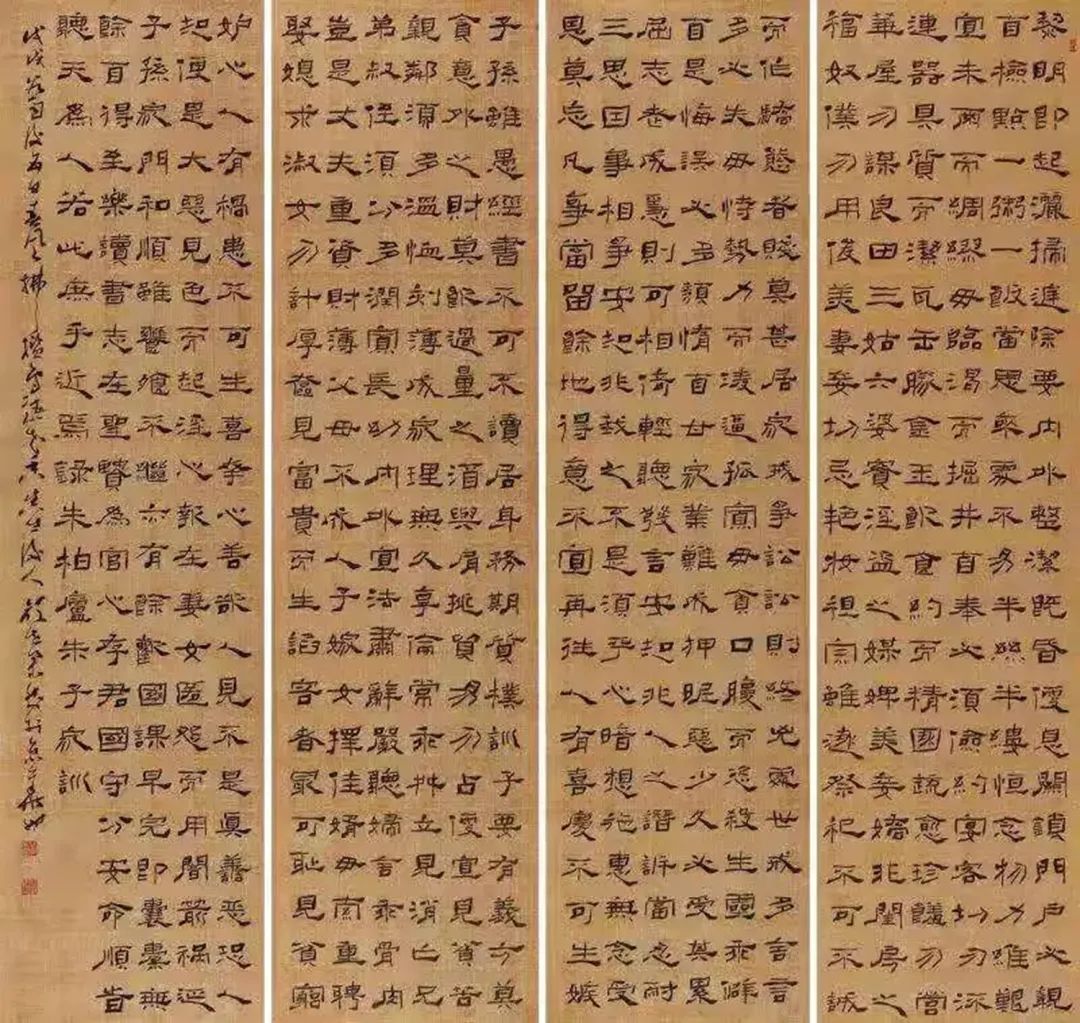 黎明即起灑掃庭除要內外整潔既昏便息關鎖門戶必親
自檢點一粥一飯當思來處不易半絲半縷恒念物力維艱
宜未雨而綢繆毋臨渴而掘井自奉必須儉約宴客切勿流
連器具質而潔瓦缶勝金玉飲食約而精園蔬愈珍饈勿營
華屋勿謀良田三姑六婆實淫盜之媒婢美妾嬌非閨房之
福奴僕勿用俊美妻妾切忌艷妝祖宗雖遠祭祀不可不誠
子孫雖愚經書不可不讀居身務期質樸訓子要有義方莫
貪意外之財莫飲過量之酒與肩挑貿易勿占便宜見貧苦
親鄰須多溫恤刻薄成家理無久享倫常乖舛立見消亡兄
弟叔侄須分多潤寡長幼內外宜法肅辭嚴聽婦言乖骨肉
豈是丈夫重資財薄父母不成人子嫁女擇佳婿毋索重聘
娶媳求淑女勿計厚奩見富貴而生諂容者最可恥見貧窮
而作驕態者賤莫甚居家戒爭訟訟則終凶處世戒多言言
多必失毋恃勢力而凌逼孤寡毋貪口腹而恣殺生禽乖僻
自是悔誤必多頹惰自甘家業難成狎昵惡少久必受其累
屈志老成急則可相倚輕聽發言安知非人之譖訴當忍耐
三思因事相爭安知非我之不是須平心暗想施惠無念受
恩莫忘凡事當留餘地得意不宜再往人有喜慶不可生嫉
妒心人有禍患不可生喜幸心善欲人見不是真善惡恐人
知便是大惡見色而起淫心報在妻女匿怨而用暗箭禍延
子孫家門和順雖饔飧不繼亦有餘歡國課早完即囊橐無
餘自得至樂讀書志在聖賢為官心存君國守分安命順時
聽天為人若此庶乎近焉錄朱柏廬朱子家訓
戊戌